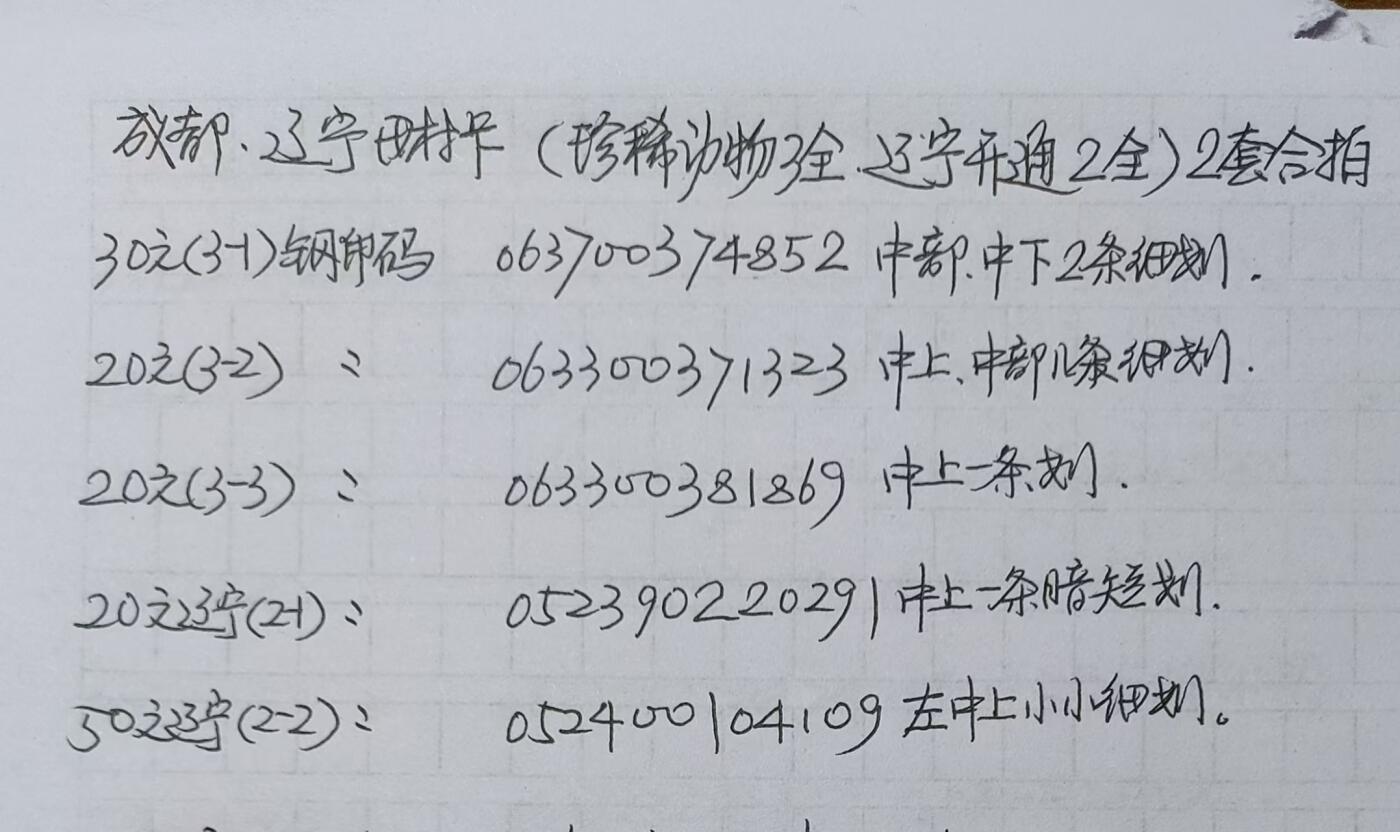 成都.辽宁田村卡（珍稀动物3全.辽宁开通2全）2套合拍
30元(3-1)钢印码 063700374852 中部.中下2条细划.
20元(3-2) 〃 063300371323 中上、中部几条细划.
20元(3-3) 〃 063300381869 中上一条划.
20元辽宁(2-1)〃 052390220291 中上一条暗短划.
50元辽宁(2-2)〃 052400104109 左中上小小细划。